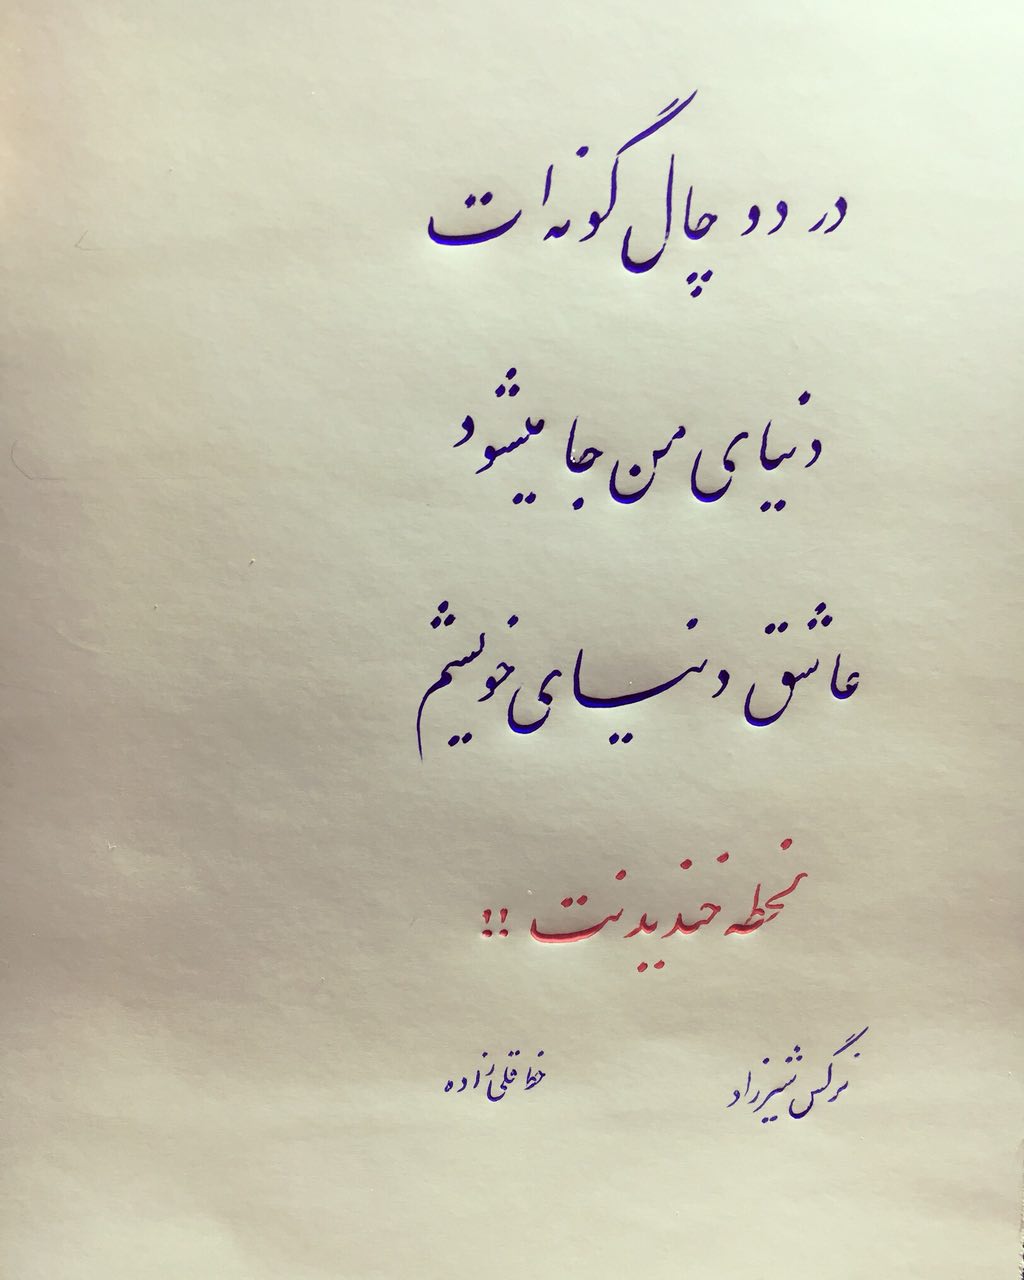 در دو چال گونه ات
دنیای من جا میشود
عاشق دنیای خویشم
لحظه خندیدنت !!
نرگس شیرزاد
خط قلی زاده